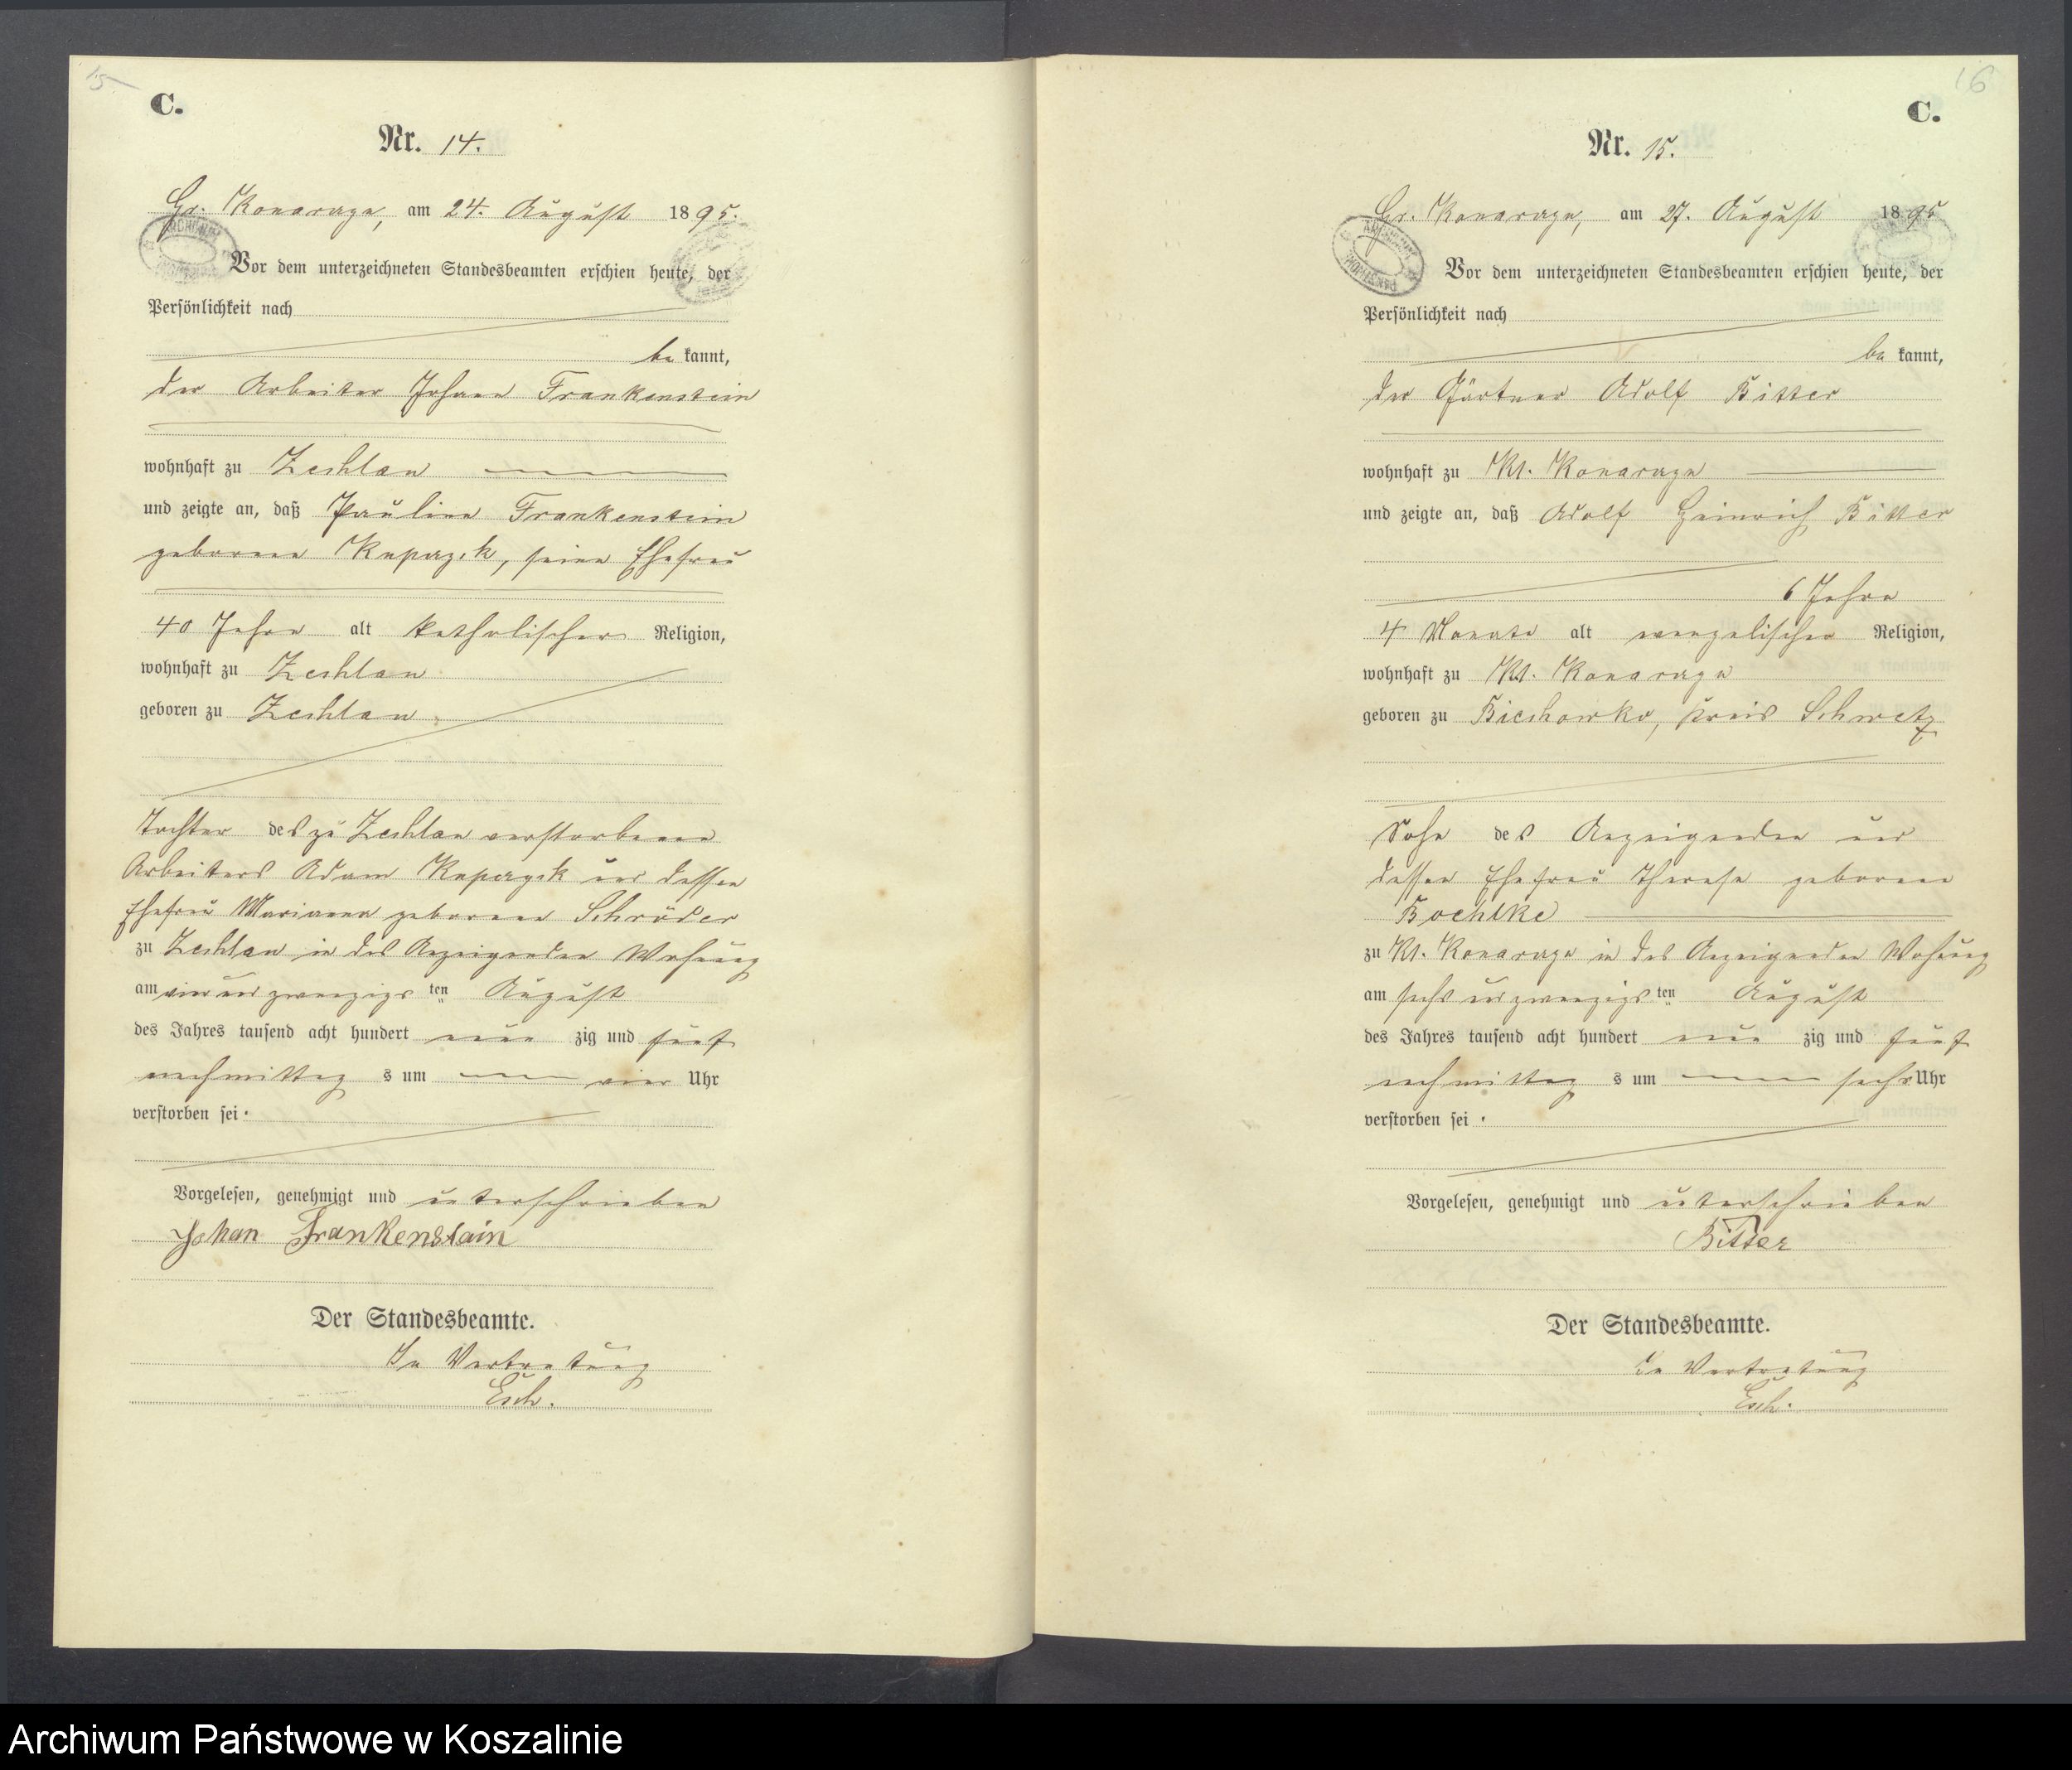 15
C.
Nr. 14.
Gr. Konarczyn, am 24. August 1895.
Vor dem unterzeichneten Standesbeamten erschien heute, der
Persönlichkeit nach
be kannt,
der Arbeiter Johann Frankenstein
wohnhaft zu Zechlau
und zeigte an, daß Pauline Frankenstein
geborene Kaparzik, seine Ehefrau
40 Jahre alt katholischer Religion,
wohnhaft zu Zechlau
geboren zu Zechlau
Tochter des zu Zechlau verstorbenen
Arbeiters Adam und dessen
Ehefrau Marianna geborene Schröder
zu Zechlau in des Anzeigenden Wohnung
am ein und zwanzigs ten August
des Jahres tausend acht hundert neun zig und fünf
nachmittag s um vier Uhr
verstorben sei.
Vorgelesen, genehmigt und unterschrieben
Johan Frankenstain
Der Standesbeamte.
In Vertretung
Esch.
16
C.
Nr. 15.
Gr. Konarczyn, am 27. August 1895
Vor dem unterzeichneten Standesbeamten erschien heute, der
Persönlichkeit nach
be kannt,
der Gärtner Adolf Bitter
wohnhaft zu Kl. Konarczyn
und zeigte an, daß Adolf Heinrich Bitter
6 Jahre
4 Monate alt evangelischer Religion,
wohnhaft zu Kl. Konarczyn
geboren zu Bieschowko, Kreis Schwetz
Sohn des Anzeigenden und
dessen Ehefrau Therese geborene
Boehlke
zu Kl. Konarczyn in des Anzeigenden Wohnung
am sechs und zwanzigs ten August
des Jahres tausend acht hundert neun zig und fünf
nachmittag s um sechs Uhr
verstorben sei.
Vorgelesen, genehmigt und unterschrieben
Bitter
Der Standesbeamte.
In Vertretung
Esch.
Archiwum Państwowe w Koszalinie